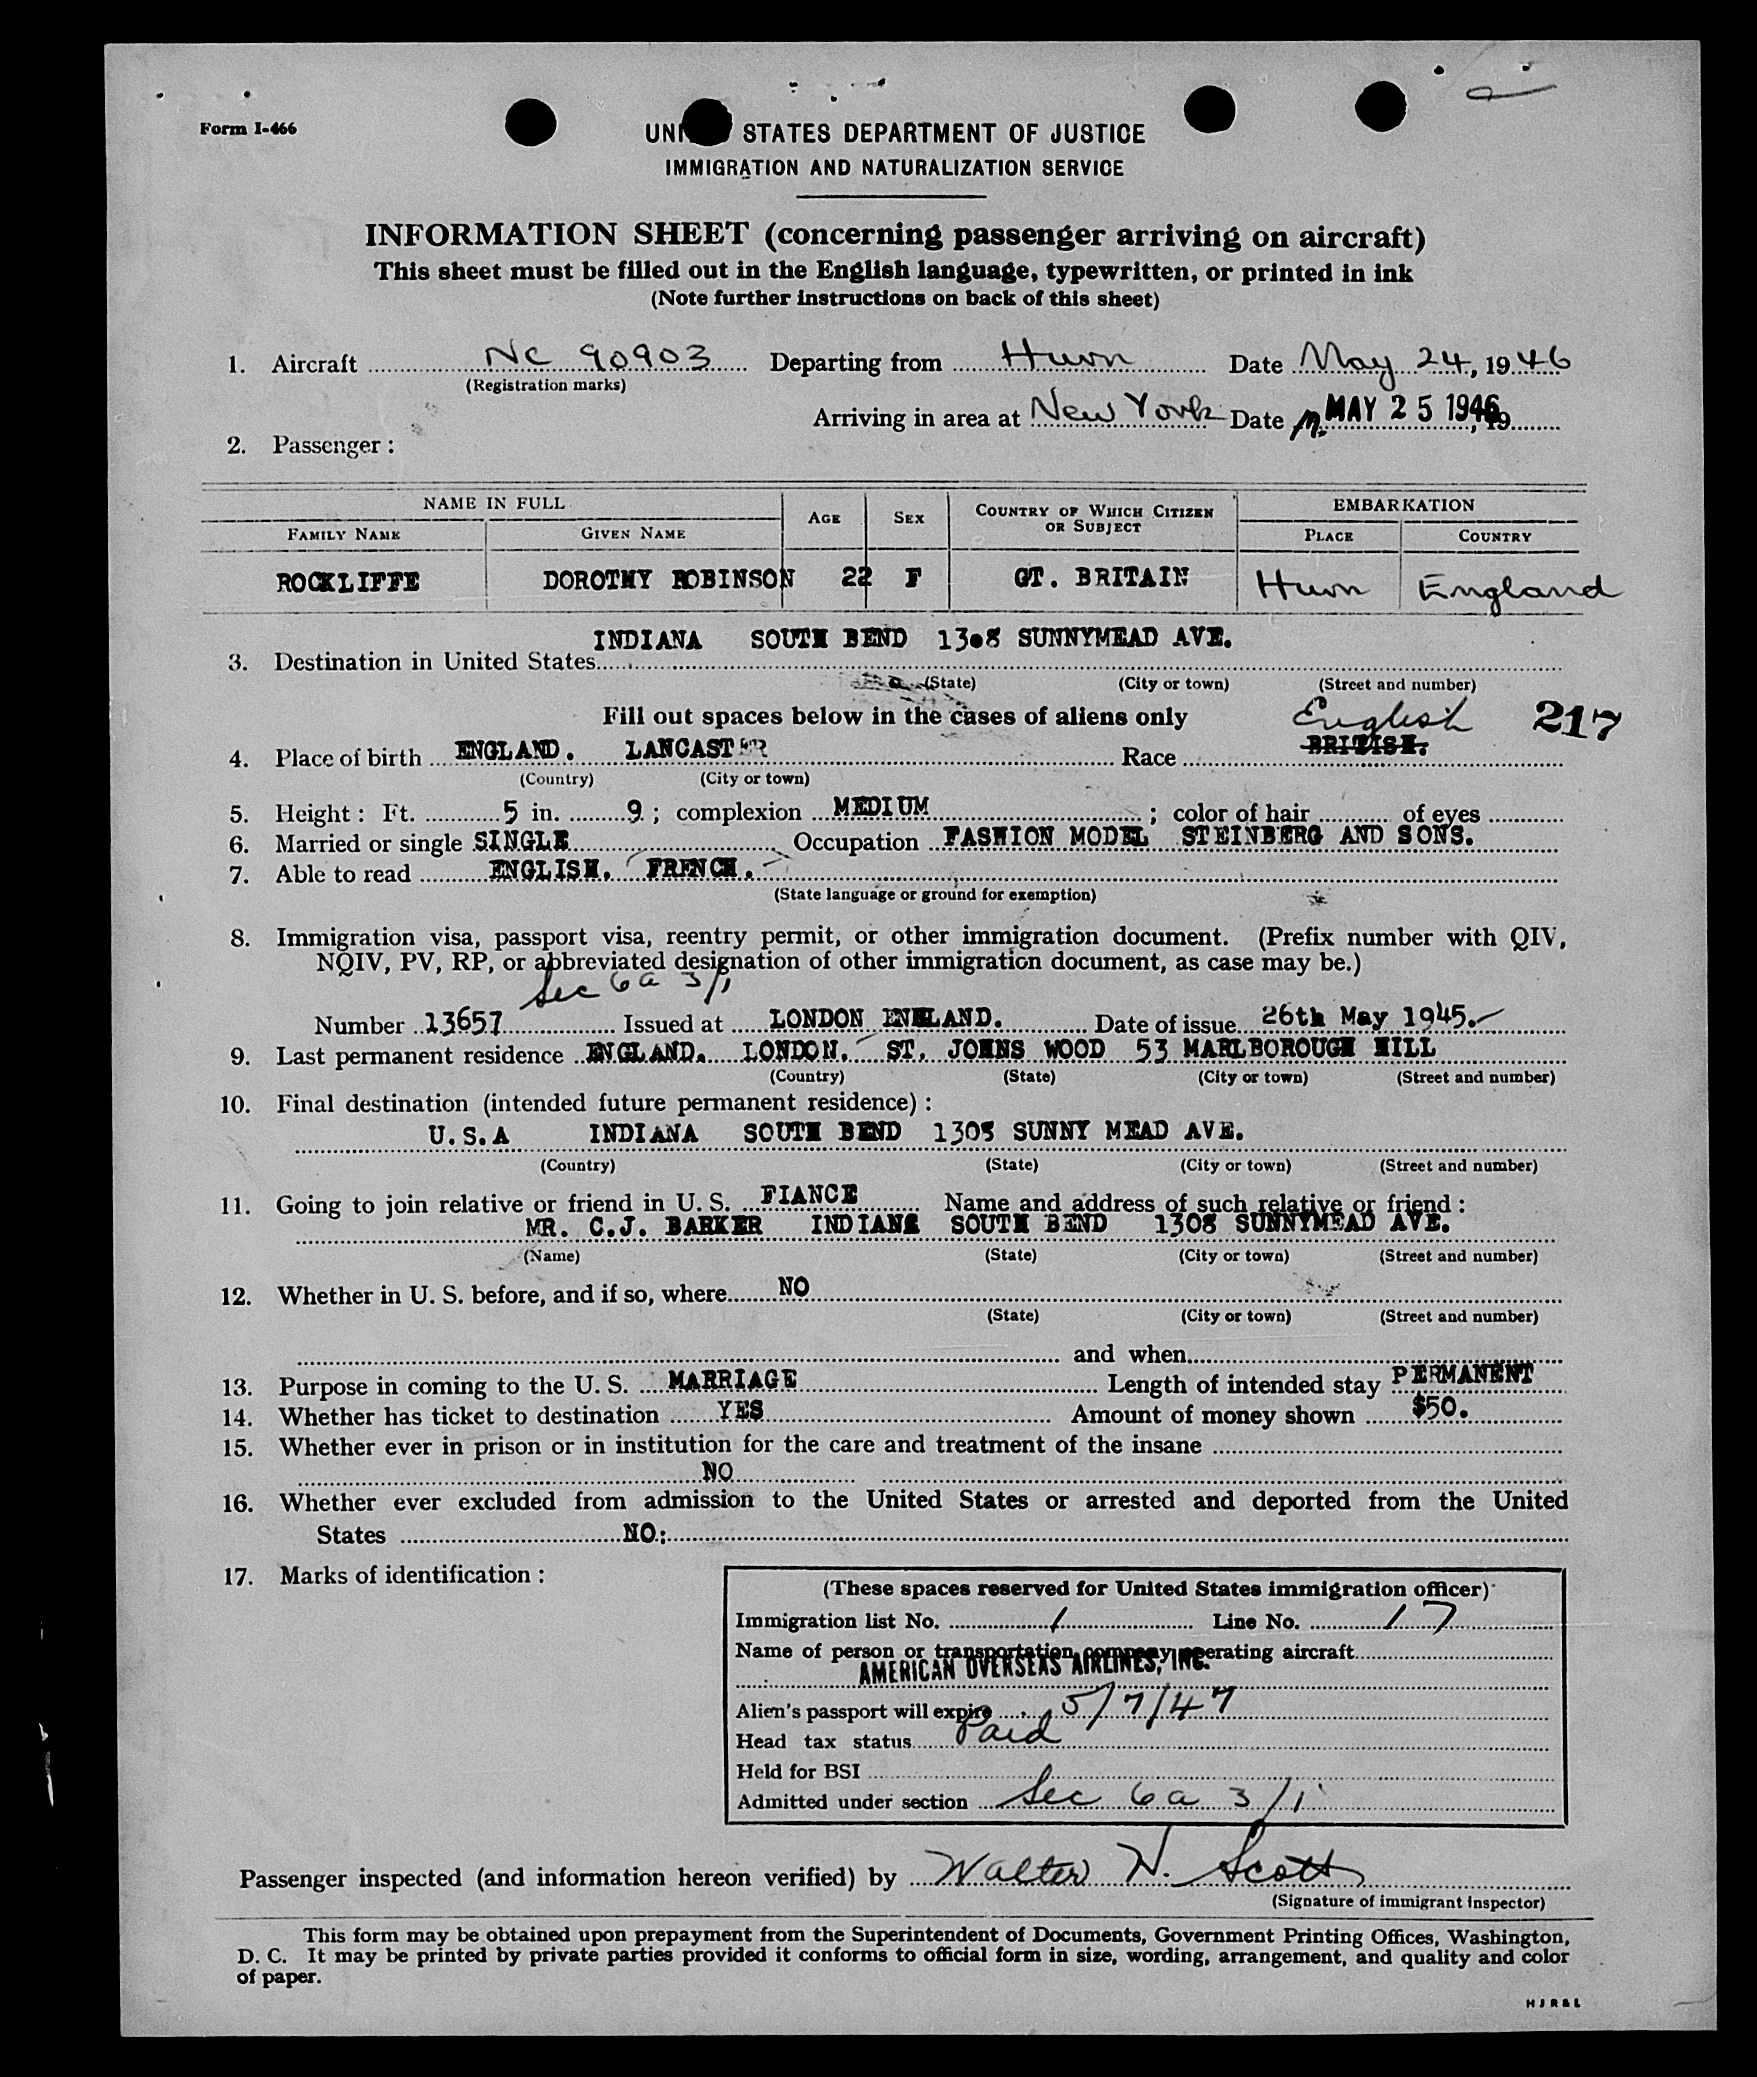 Form I-466
UNI STATES DEPARTMENT OF JUSTICE
IMMIGRATION AND NATURALIZATION SERVICE
INFORMATION SHEET (concerning passenger arriving on aircraft)
This sheet must be filled out in the English language, typewritten, or printed in ink
(Note further instructions on back of this sheet)
1. Aircraft NC 90903 Departing from Hurn Date May 24, 1946
(Registration marks)
Arriving in area at New York Date MAY 25 1946, 19
2. Passenger:
NAME IN FULL AGE SEX COUNTRY OF WHICH CITIZEN OR SUBJECT EMBARKATION
FAMILY NAME GIVEN NAME PLACE COUNTRY
ROCKLIFFE DOROTHY ROBINSON 22 F GT. BRITAIN Hurn England
INDIANA SOUTH BEND 1308 SUNNYMEAD AVE.
3. Destination in United States
(State) (City or town) (Street and number)
Fill out spaces below in the cases of aliens only English 217
4. Place of birth ENGLAND. LANCASTER Race BRITISH.
(Country) (City or town)
5. Height: Ft. 5 in. 9; complexion MEDIUM; color of hair of eyes
6. Married or single SINGLE Occupation FASHION MODEL STEINBERG AND SONS.
7. Able to read ENGLISH. FRENCH.
(State language or ground for exemption)
8. Immigration visa, passport visa, reentry permit, or other immigration document. (Prefix number with QIV,
NQIV, PV, RP, or abbreviated designation of other immigration document, as case may be.)
Sec 6a 3/1
Number 13657 Issued at LONDON ENGLAND. Date of issue 26th May 1945.
9. Last permanent residence ENGLAND. LONDON. ST. JOHNS WOOD 53 MARLBOROUGH HILL
(Country) (State) (City or town) (Street and number)
10. Final destination (intended future permanent residence):
U.S.A INDIANA SOUTH BEND 1308 SUNNY MEAD AVE.
(Country) (State) (City or town) (Street and number)
11. Going to join relative or friend in U. S. FIANCE Name and address of such relative or friend:
MR. C.J. BARKER INDIANA SOUTH BEND 1308 SUNNYMEAD AVE.
(Name) (State) (City or town) (Street and number)
12. Whether in U. S. before, and if so, where NO
(State) (City or town) (Street and number)
and when
13. Purpose in coming to the U. S. MARRIAGE Length of intended stay PERMANENT
14. Whether has ticket to destination YES Amount of money shown $50.
15. Whether ever in prison or in institution for the care and treatment of the insane
NO
16. Whether ever excluded from admission to the United States or arrested and deported from the United
States NO:
17. Marks of identification:
(These spaces reserved for United States immigration officer)
Immigration list No. 1 Line No. 17
Name of person or transportation company operating aircraft
AMERICAN OVERSEAS AIRLINES, INC.
Alien's passport will expire 5/7/47
Head tax status Paid
Held for BSI
Admitted under section Sec 6a 3/1
Passenger inspected (and information hereon verified) by Walter W. Scott
(Signature of immigrant inspector)
This form may be obtained upon prepayment from the Superintendent of Documents, Government Printing Offices, Washington,
D. C. It may be printed by private parties provided it conforms to official form in size, wording, arrangement, and quality and color
of paper.
HJR&L